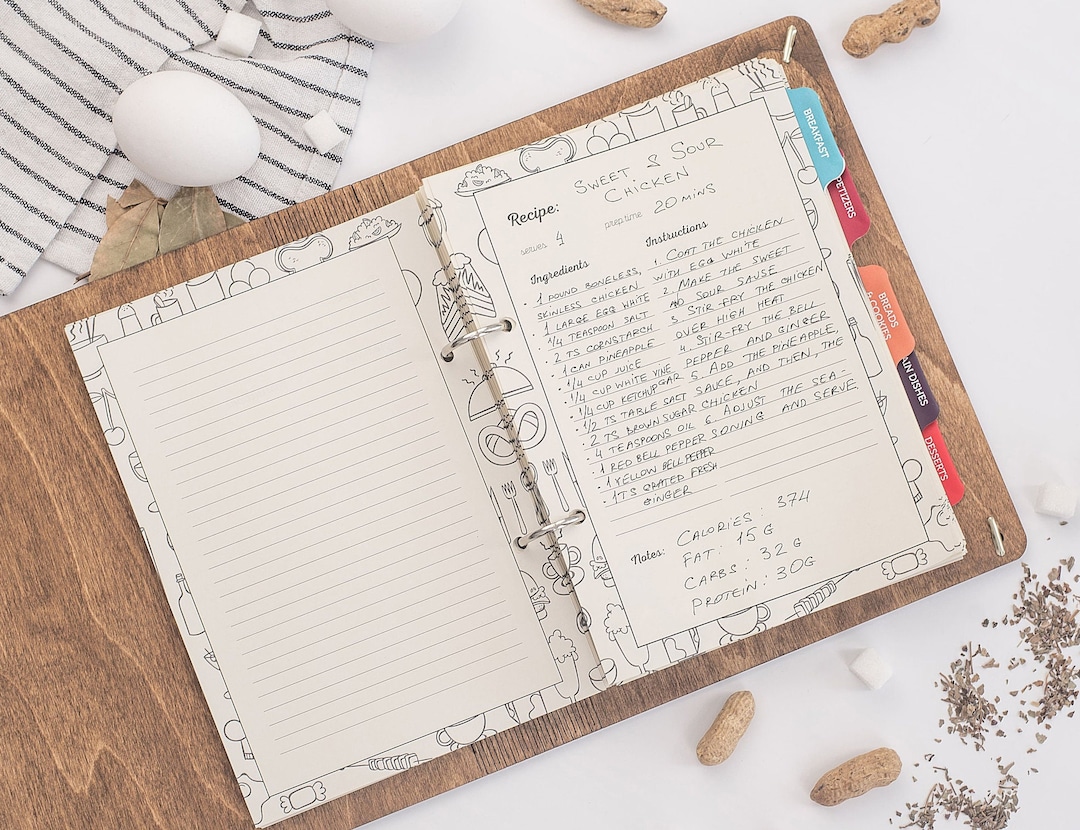 SWEET & SOUR
CHICKEN
Recipe:
serves 4
prep time 20 MINS
Ingredients
• 1 POUND BONELESS,
SKINLESS CHICKEN
• 1 LARGE EGG WHITE
• 1/4 TEASPOON SALT
• 2 TS CORNSTARCH
• 1 CAN PINEAPPLE
• 1/4 CUP JUICE
• 1/4 CUP WHITE VINEGAR
• 1/4 CUP KETCHUP
• 1/2 TS TABLE SALT
• 2 TS BROWN SUGAR
• 4 TEASPOONS OIL
• 1 RED BELL PEPPER
• 1 YELLOW BELL PEPPER
• 1 TS GRATED FRESH
GINGER
Instructions
1. COAT THE CHICKEN
WITH EGG WHITE
2. MAKE THE SWEET
AND SOUR SAUSE
3. STIR-FRY THE CHICKEN
OVER HIGH HEAT
4. STIR-FRY THE BELL
PEPPER AND GINGER
5. ADD THE PINEAPPLE,
SAUCE, AND THEN, THE
CHICKEN
6. ADJUST THE SEA-
SONING AND SERVE
Notes:
CALORIES: 374
FAT: 15 G
CARBS: 32 G
PROTEIN: 30G
BREAKFAST
PETIZERS
BREADS
& COOKIES
AIN DISHES
DESSERTS